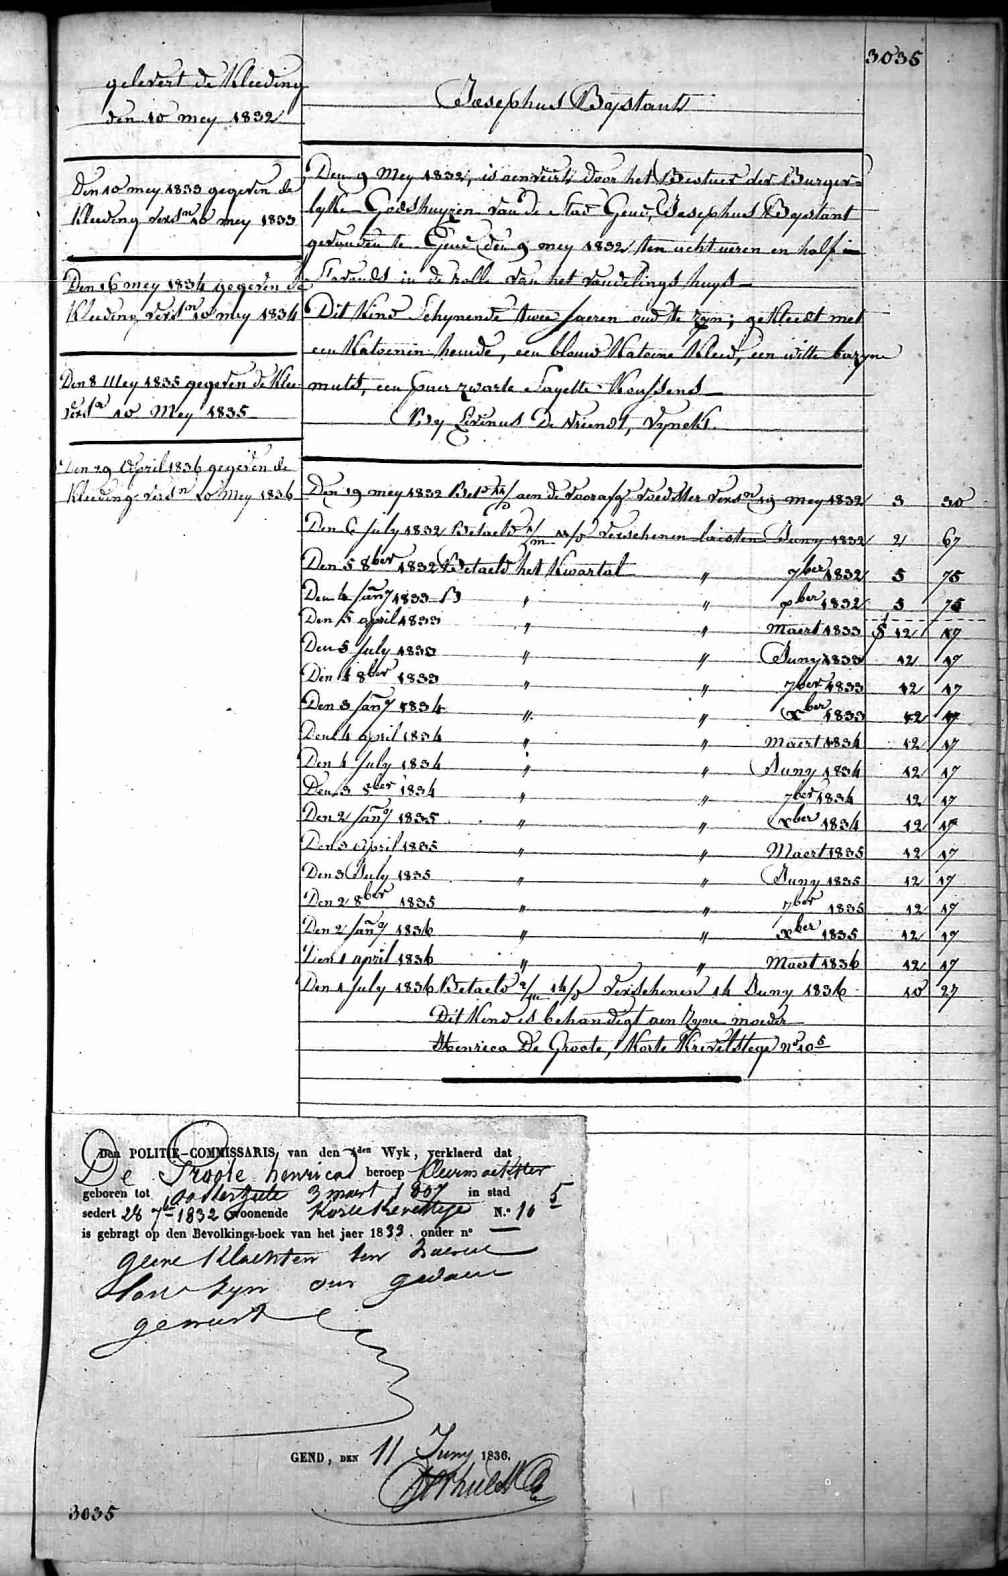 3035
gelevert de Kleeding
den 10 mey 1832
Josephus Bystant
Den 10 mey 1833 gegeven de
Kleeding versn 10 mey 1833
Den 16 mey 1834 gegeven de
Kleeding versn 10 mey 1834
Den 8 Mey 1835 gegeven de Klee
versn 10 Mey 1835
Den 29 April 1836 gegeven de
Kleeding versn 10 Mey 1836
Den 9 Mey 1832, is aenveird door het Bestuer der Burger=
lyke Godshuyzen van de Stad Gend, Josephus Bystant
gevonden te Gend den 9 mey 1832 ten acht ueren en half
savonds in de rolle van het vondelings huys
Dit Kind schynende twee jaeren oud te zyn; gekleedt met
een Katoenen hemde, een blauw Katoene Kleed, een witte bazyne
muts, een paer zwarte Sayette Koussens
By Livinus De Vriendt, Vynckt
Den 19 mey 1832 aen de voorafg voedster versn 19 mey 1832 3 30
Den 6 July 1832 Betaeld verschenen laesten Juny 1832 2 67
Den 5 8ber 1832 Betaeld het Kwartal " 7ber 1832 5 75
Den 4 Jany 1833 " " xber 1832 5 75
Den 5 april 1833 " " Maert 1833 12 17
Den 5 July 1833 " " Juny 1833 12 17
Den 4 8ber 1833 " " 7ber 1833 12 17
Den 3 Jany 1834 " " xber 1833 12 17
Den 4 april 1834 " " Maert 1834 12 17
Den 4 July 1834 " " Juny 1834 12 17
Den 3 8ber 1834 " " 7ber 1834 12 17
Den 2 Jany 1835 " " xber 1834 12 17
Den 3 April 1835 " " Maert 1835 12 17
Den 3 July 1835 " " Juny 1835 12 17
Den 2 8ber 1835 " " 7ber 1835 12 17
Den 2 Jany 1836 " " xber 1835 12 17
Den 1 april 1836 " " Maert 1836 12 17
Den 1 July 1836 Betaeld 2/m 14/d verschenen 14 Juny 1836 10 27
Dit Kind is behandigt aen zyne moeder
Henrica De Groote, Korte Krevelstege No 10 5
Den POLITIE-COMMISSARIS van den 1den Wyk, verklaerd dat
De Groote henrica beroep kleermaekster
geboren tot oosterzeele 3 maert 1807 in stad
sedert 28 7b 1832 woonende Korte Kevelstege N.° 10 5
is gebragt op den Bevolkings-boek van het jaer 1833. onder n°
geene Klachten ten haeren
laste zyn ons gedaen
geweest
GEND, DEN 11 Juny 1836.
3035